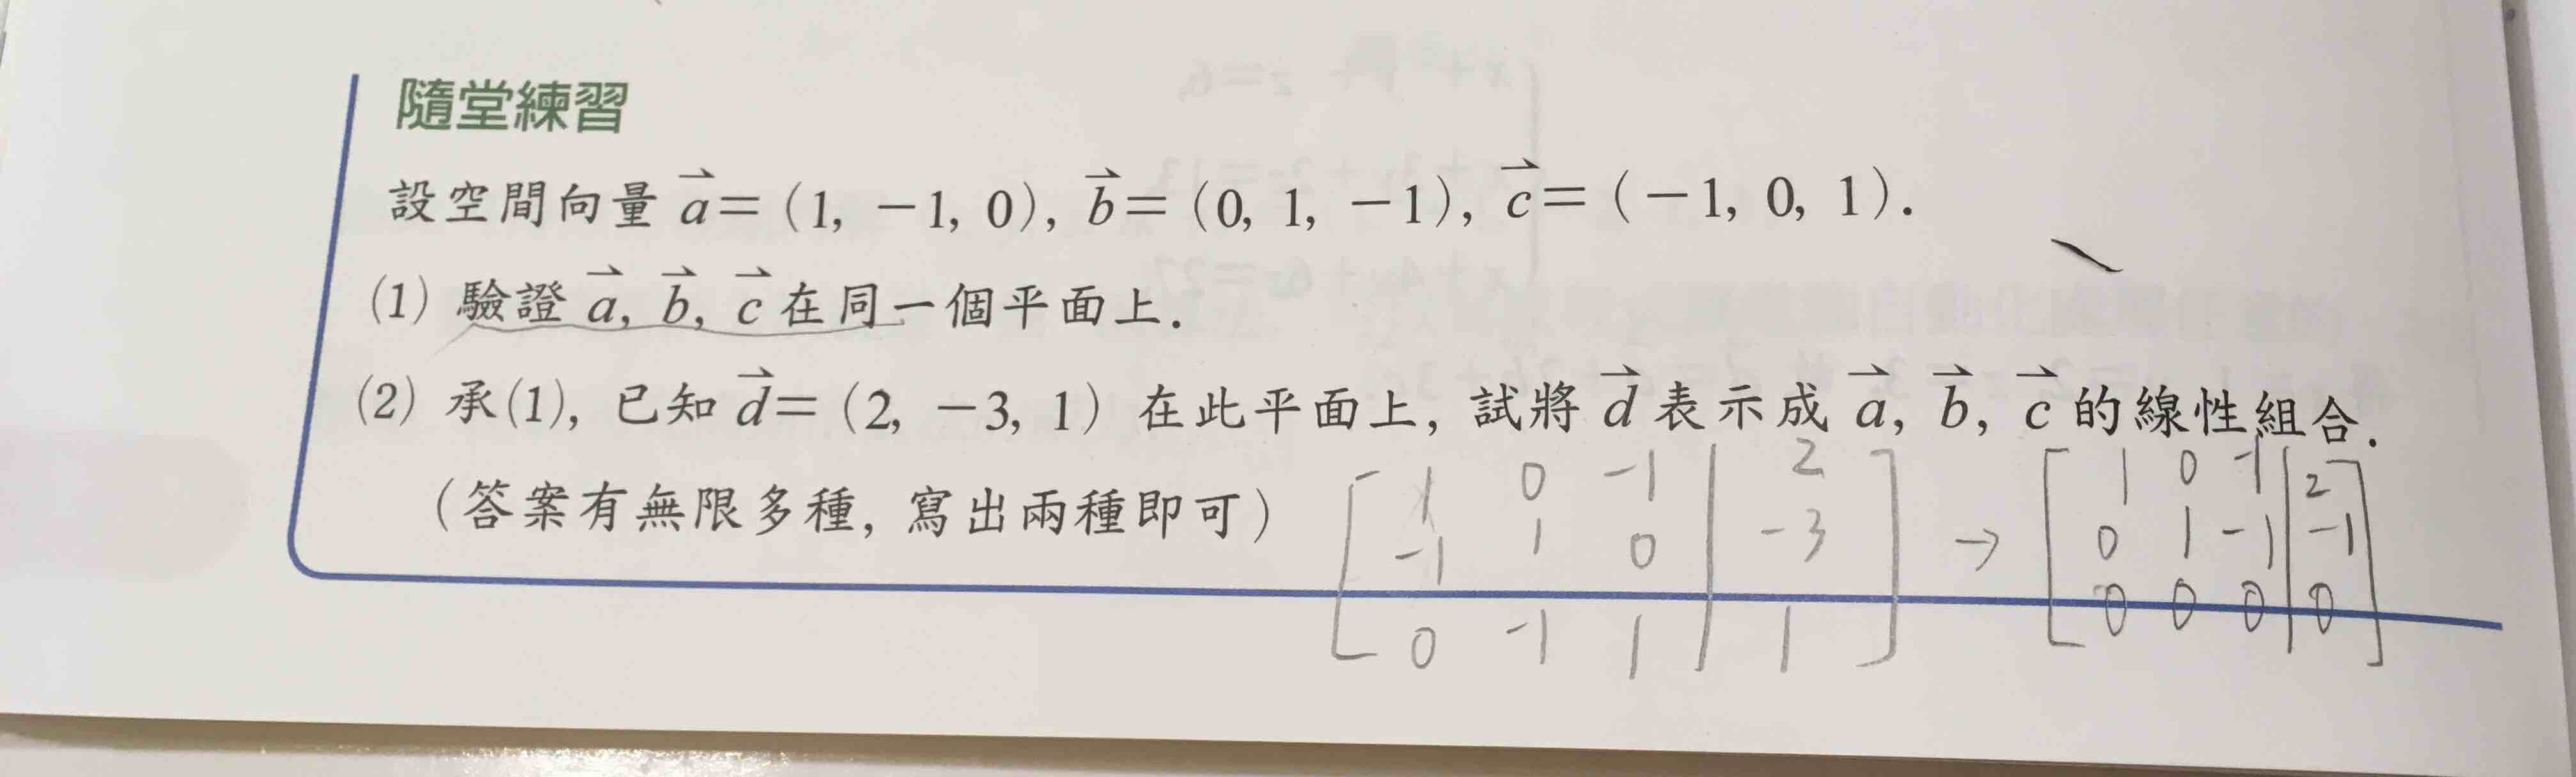 隨堂練習
設空間向量 a⃗=(1, −1, 0), b⃗=(0, 1, −1), c⃗=(−1, 0, 1).
(1) 驗證 a⃗, b⃗, c⃗ 在同一個平面上.
(2) 承(1), 已知 d⃗=(2, −3, 1) 在此平面上, 試將 d⃗ 表示成 a⃗, b⃗, c⃗ 的線性組合.
(答案有無限多種, 寫出兩種即可)
[1 0 -1 | 2] [1 0 -1 | 2]
[-1 1 0 | -3] → [0 1 -1 | -1]
[0 -1 1 | 1] [0 0 0 | 0]